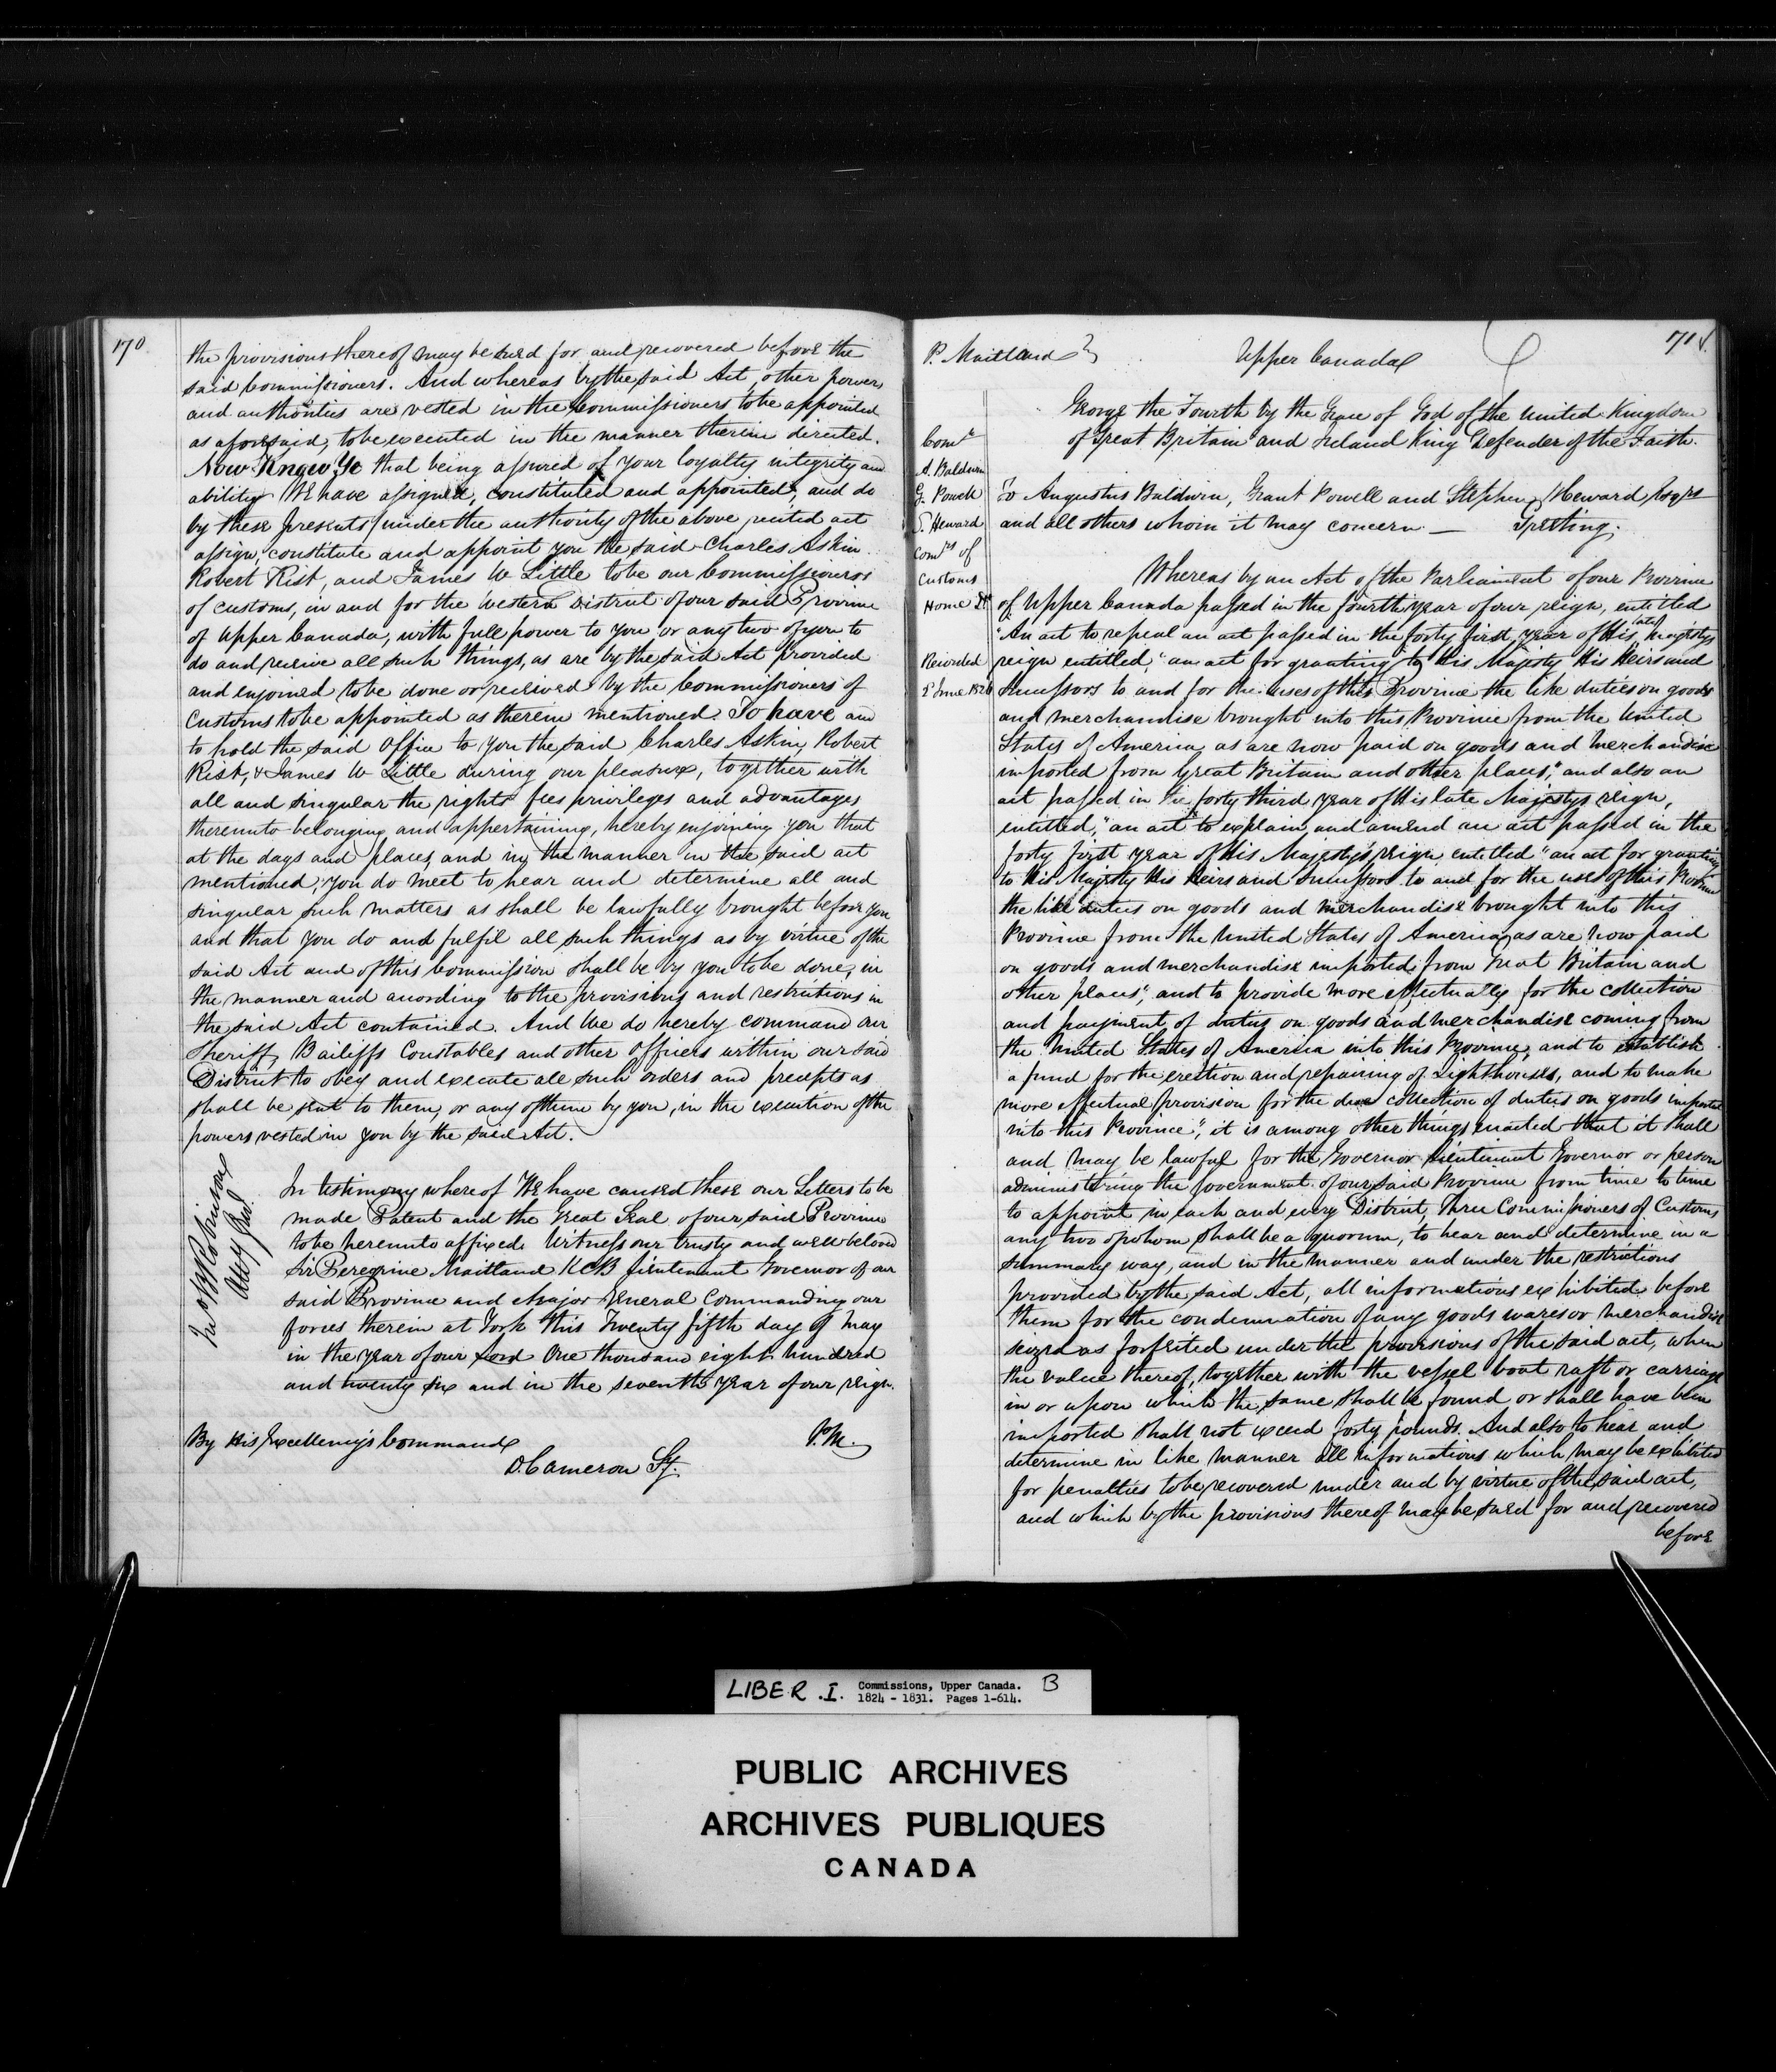 170
the provisions thereof may be sued for and recovered before the
said Commissioners. And whereas by the said Act, other powers
and authorities are vested in the Commissioners to be appointed
as aforesaid, to be executed in the manner therein directed.
Now Know Ye that being assured of your loyalty integrity and
ability We have assigned, constituted and appointed, and do
by these presents (under the authority of the above recited act
assign, constitute and appoint you the said Charles Askin
Robert Rist, and James W Little to be our Commissioners
of customs, in and for the Western District of our said Province
of Upper Canada, with full power to you or any two of you to
do and receive all such things, as are by the said Act provided
and enjoined to be done or received by the Commissioners of
Customs to be appointed as therein mentioned. To have and
to hold the said Office to you the said Charles Askin, Robert
Rist, & James W Little during our pleasure, together with
all and singular the rights fees privileges and advantages
thereunto belonging and appertaining, hereby enjoining you that
at the days and places and in the manner in the said act
mentioned, you do meet to hear and determine all and
singular such matters as shall be lawfully brought before you
and that you do and fulfil all such things as by virtue of the
said Act and of this Commission shall be by you to be done, in
the manner and according to the provisions and restrictions in
the said Act contained. And We do hereby command our
Sheriff, Bailiffs Constables and other officers within our said
District to obey and execute all such orders and precepts as
shall be sent to them, or any of them by you, in the execution of the
powers vested in you by the said Act.
Jno B Robinson
Atty Genl.
In testimony whereof We have caused these our Letters to be
made Patent and the Great Seal of our said Province
to be hereunto affixed. Witness our trusty and well beloved
Sir Peregrine Maitland KCB Lieutenant Governor of our
said Province and Major General Commanding our
forces therein at York this Twenty fifth day of May
in the year of our Lord One thousand eight hundred
and twenty six and in the seventh year of our reign.
By His Excellency's Command
P.M.
D. Cameron Sy.
P. Maitland
Upper Canada
171
George the Fourth by the Grace of God of the United Kingdom
of Great Britain and Ireland King Defender of the Faith.
Comn
A. Baldwin
G. Powell
S. Heward
Comrs of
Customs
Home Dt
Recorded
2 June 1826
To Augustus Baldwin, Grant Powell and Stephen Heward Esqrs
and all others whom it may concern — Greeting.
Whereas by an Act of the Parliament of our Province
of Upper Canada passed in the fourth year of our reign, entitled
"An act to repeal an act passed in the forty first year of His late Majestys
reign entitled, "an act for granting to His Majesty His Heirs and
Successors to and for the uses of this Province the like duties on goods
and merchandise brought into this Province from the United
States of America as are now paid on goods and merchandise
imported from Great Britain and other places," and also an
act passed in the forty third year of His late Majestys reign,
entitled, "an act to explain and amend an act passed in the
forty first year of His Majesty's reign, entitled "an act for granting
to His Majesty His Heirs and Successors to and for the uses of this Province
the like duties on goods and merchandise brought into this
Province from the United States of America, as are now paid
on goods and merchandise imported from Great Britain and
other places", and to provide more effectually for the collection
and payment of duties on goods and merchandise coming from
the United States of America into this Province, and to establish
a fund for the erection and repairing of Lighthouses, and to make
more effectual provision for the due collection of duties on goods imported
into this Province", it is among other things enacted that it shall
and may be lawful for the Governor Lieutenant Governor or person
administering the government of our said Province from time to time
to appoint in each and every District, Three Commissioners of Customs
any two of whom shall be a quorum, to hear and determine in a
summary way, and in the manner and under the restrictions
provided by the said Act, all informations exhibited before
them for the condemnation of any goods wares or merchandise
seized as forfeited under the provisions of the said act, when
the value thereof, together with the vessel boat raft or carriage
in or upon which the same shall be found or shall have been
imported shall not exceed forty pounds. And also to hear and
determine in like manner all informations which may be exhibited
for penalties to be recovered under and by virtue of the said act,
and which by the provisions thereof may be sued for and recovered
before
LIBER .I. Commissions, Upper Canada. B
1824 - 1831. Pages 1-614.
PUBLIC ARCHIVES
ARCHIVES PUBLIQUES
CANADA